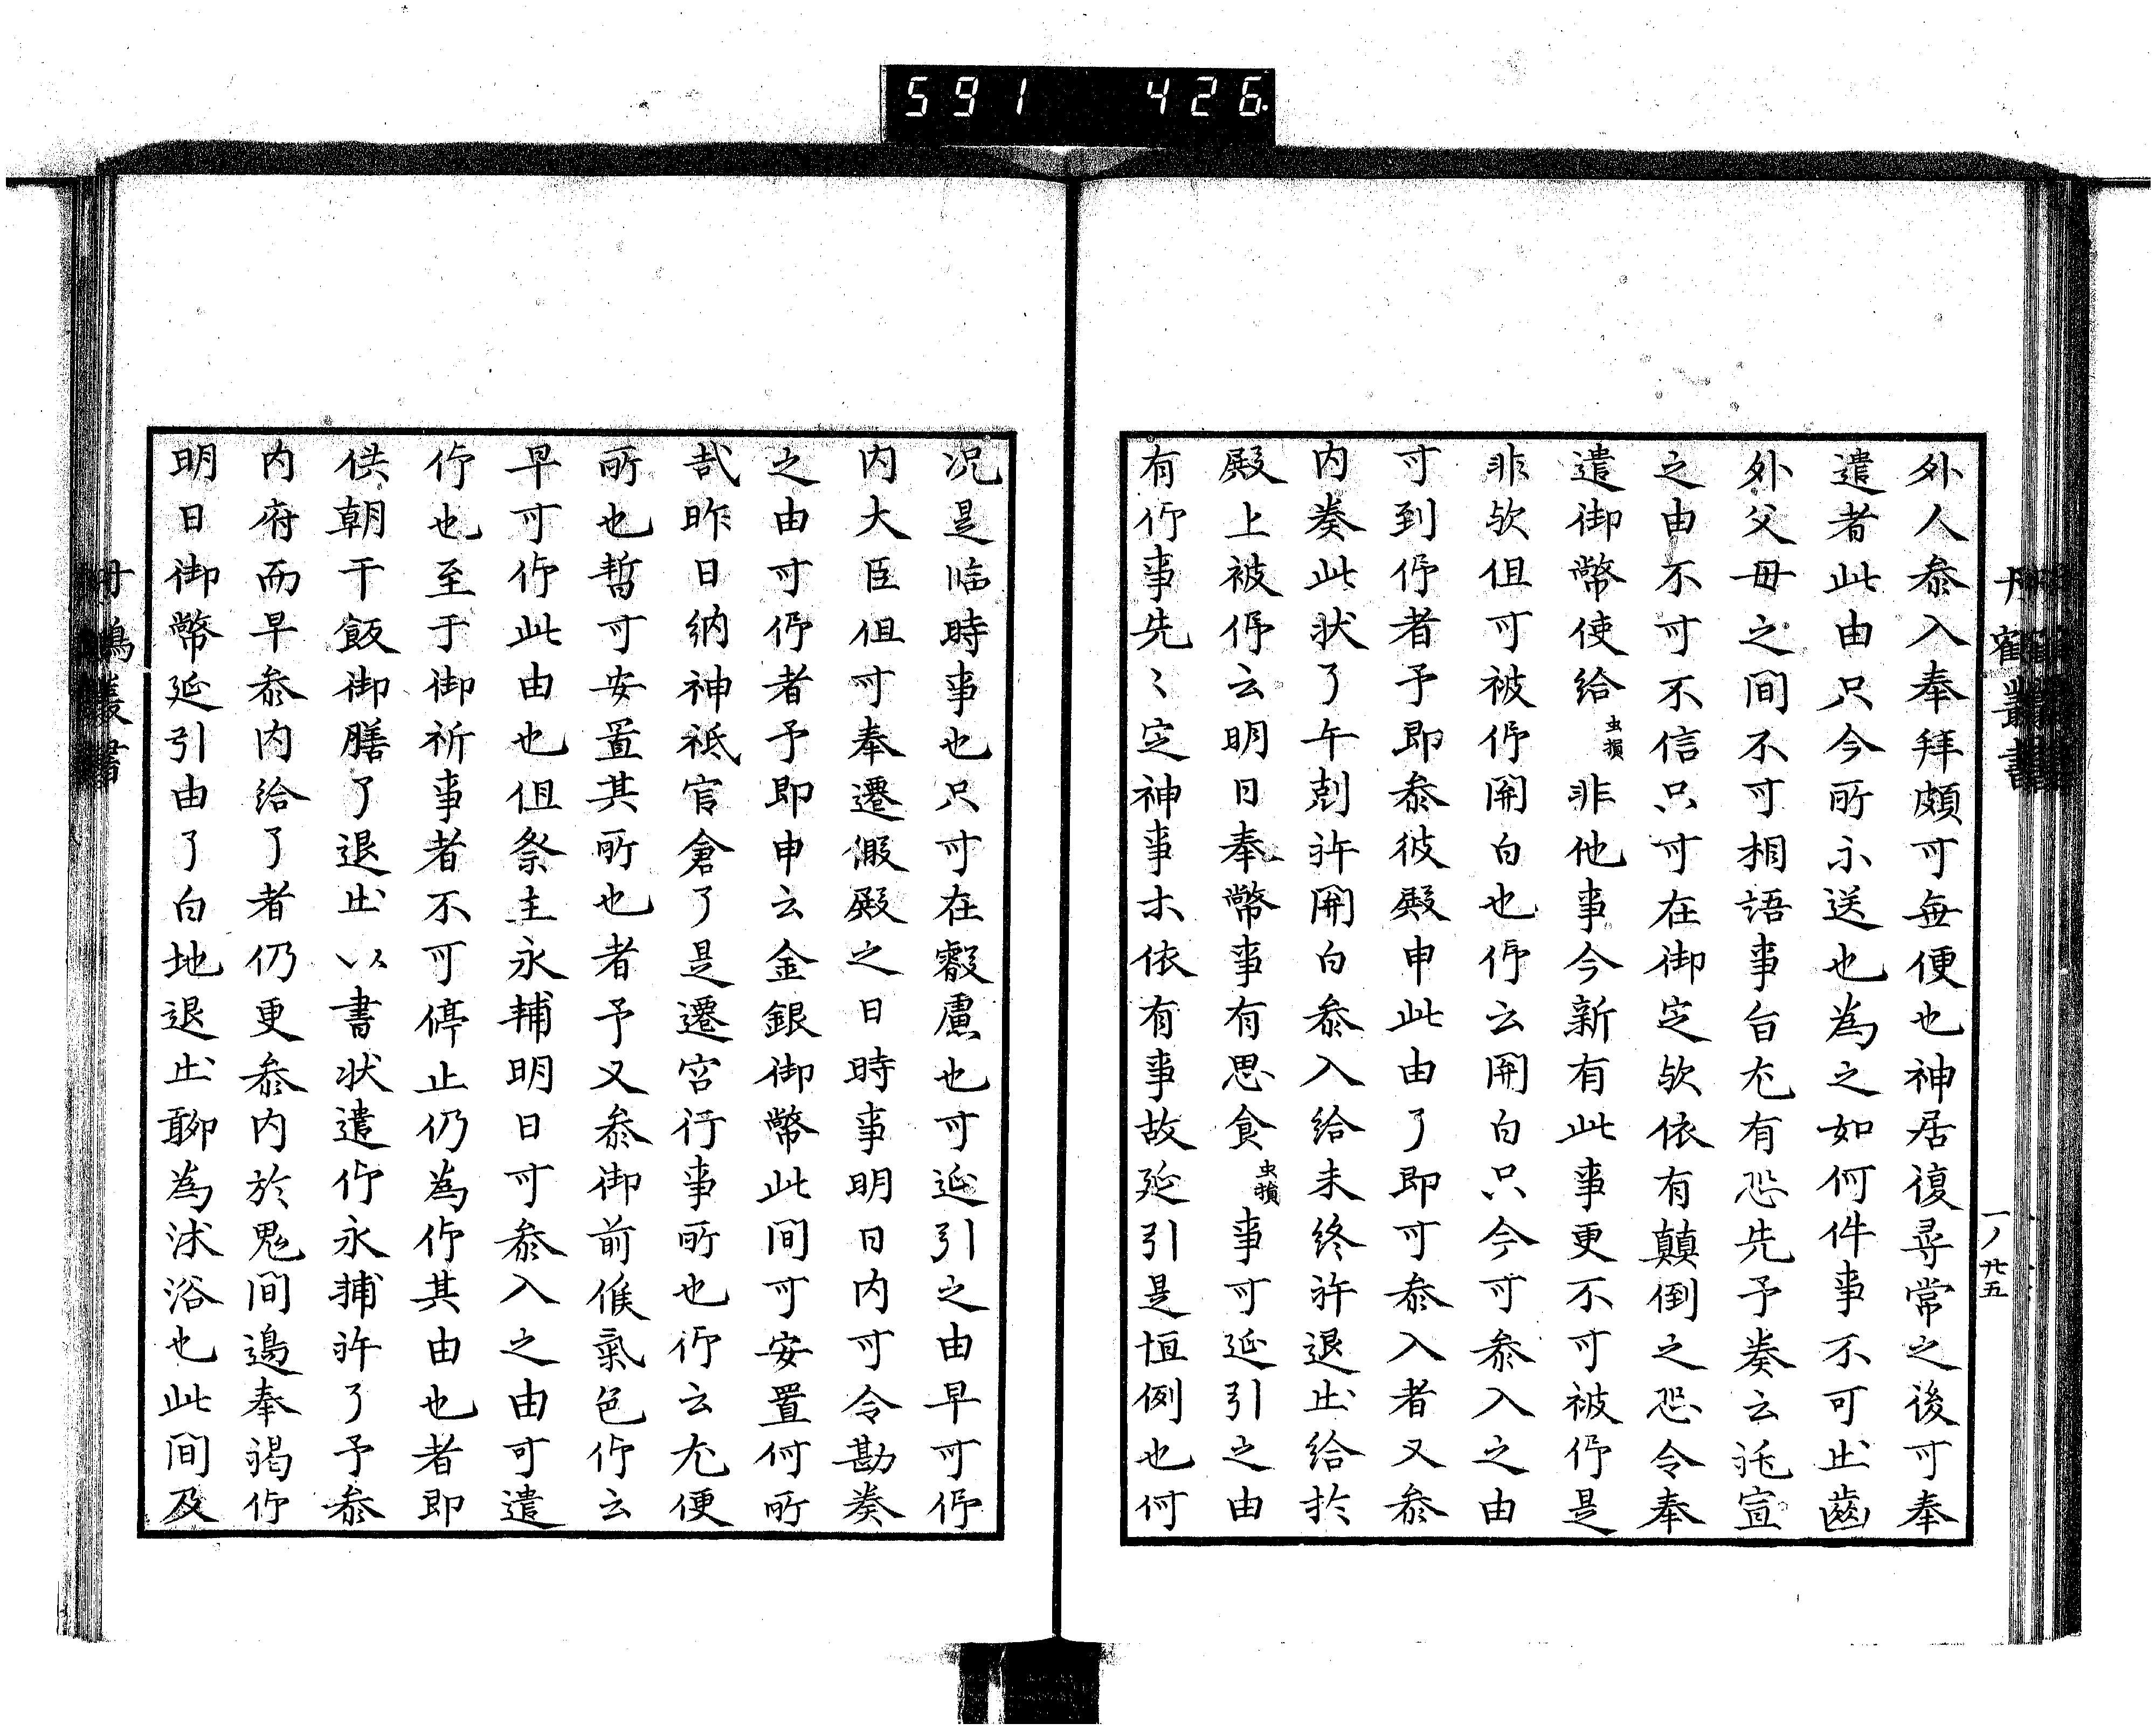 591 426
丹鶴叢書
一ノ廿五
外人叅入奉拜頗可無便也神居復尋常之後可奉
遣者此由只今所示送也為之如何件事不可止齒
外父母之間不可相語事旨尤有恐先予奏云託宣
之由不可不信只可在御定欤依有顛倒之恐令奉
遣御幣使給虫損非他事今新有此事更不可被仰是
非欤但可被仰関白也仰云関白只今可叅入之由
可到仰者予即叅彼殿申此由了即可叅入者又叅
内奏此状了午剋許関白叅入給未終許退出給於
殿上被仰云明日奉幣事有思食虫損事可延引之由
有仰事先々定神事木依有事故延引是恒例也何
况是臨時事也只可在叡慮也可延引之由早可仰
内大臣但可奉遷假殿之日時事明日内可令勘奏
之由可仰者予即申云金銀御幣此間可安置何所
哉昨日納神祇官倉了是遷宮行事所也仰云尤便
所也暫可安置其所也者予又叅御前候氣色仰云
早可仰此由也但祭主永輔明日可叅入之由可遣
仰也至于御祈事者不可停止仍為仰其由也者即
供朝干飯御膳了退出以書状遣仰永輔許了予叅
内府而早叅内給了者仍更叅内於鬼間邊奉謁仰
明日御幣延引由了白地退出聊為沐浴也此間及
丹鶴叢書